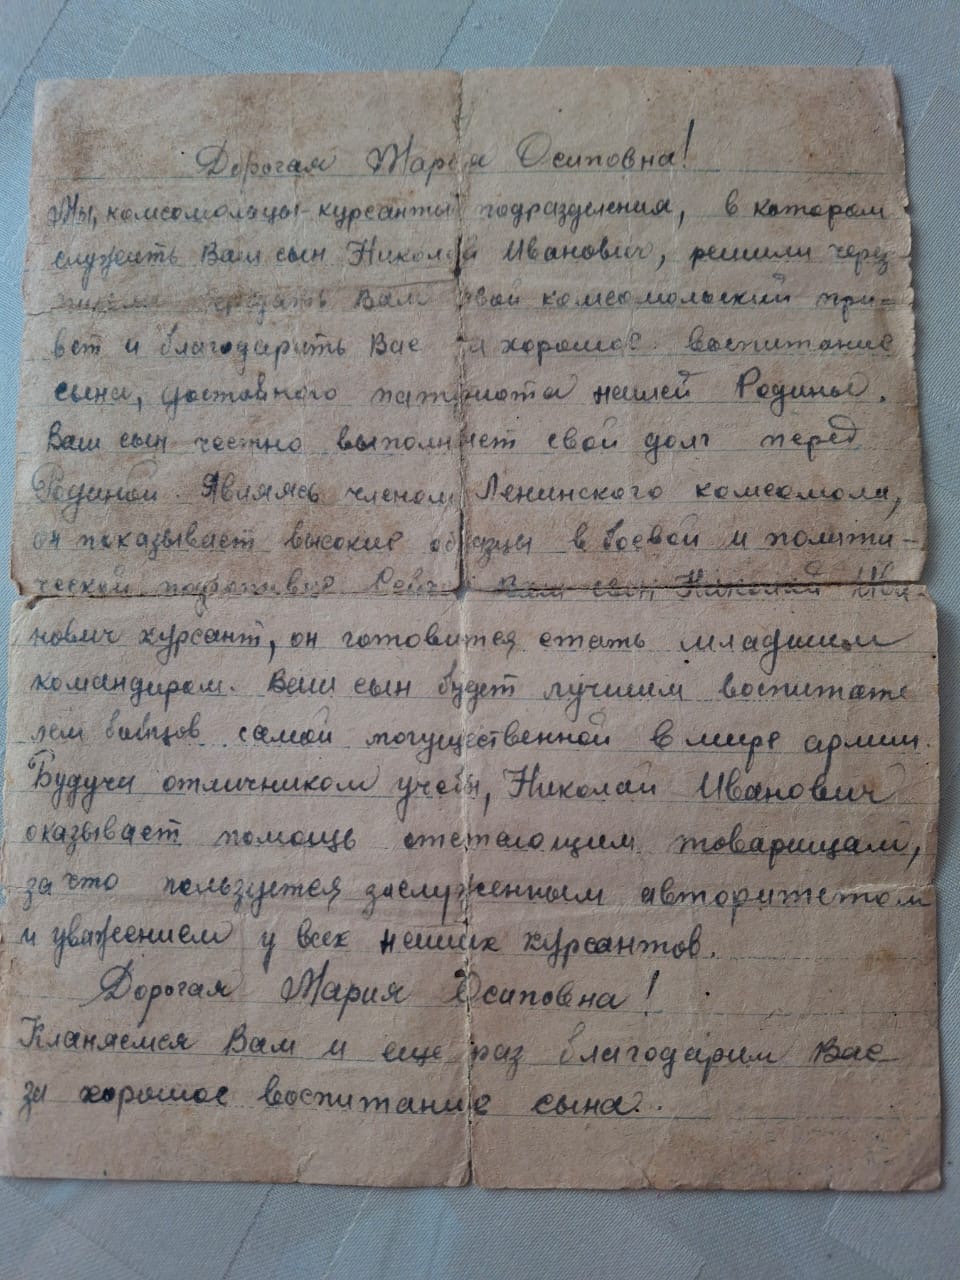 Дорогая Мария Осиповна!
Мы, комсомольцы-курсанты подразделения, в котором
служить Ваш сын Николай Иванович, решили через
письмо передать Вам свой комсомольский при-
вет и благодарить Вас за хорошое воспитание
сына, достойного патриота нашей Родины.
Ваш сын честно выполняет свой долг перед
Родиной. Являясь членом Ленинского комсомола,
он показывает высокие образцы в боевой и полити-
ческой подготовке Сейчас Ваш сын Николай Ива-
нович курсант, он готовится стать младшим
командиром. Ваш сын будет лучшим воспитате
лем бойцов самой могущественной в мире армии.
Будучи отличником учебы, Николай Иванович
оказывает помощь отстающим товарищам,
за что пользуется заслуженным авторитетом
и уважением у всех наших курсантов.
Дорогая Мария Осиповна!
Кланяемся Вам и еще раз благодарим Вас
за хорошое воспитание сына.